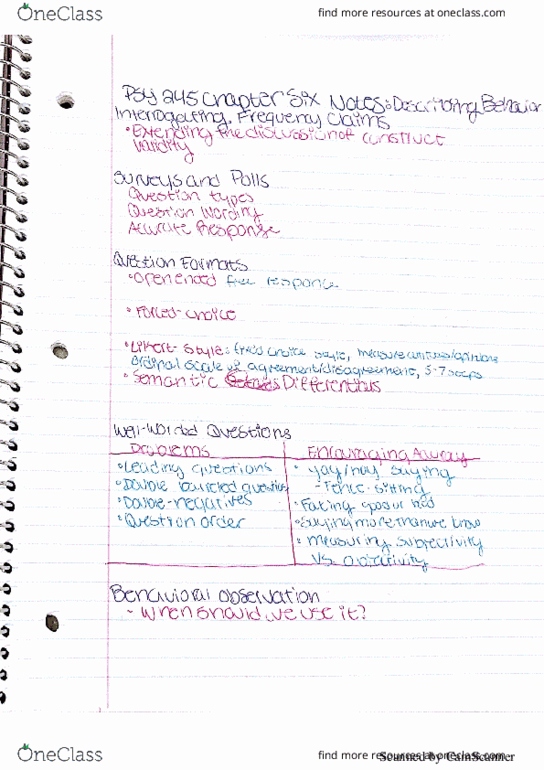 OneClass
find more resources at oneclass.com
Psy 245 Chapter Six Notes: Describing Behavior
Interrogating Frequency Claims
• Extending the discussion of construct
validity
Surveys and Polls
Question types
Question Wording
Accurate Response
Question Formats
• Open ended free response
• Forced-choice
• Likert-Style: fixed choice style, measure attitudes/opinions
ordinal scale of agreement/disagreement, 5-7 steps
• Semantic Differentials
Well-Worded Questions
Problems
Encouraging Accuracy
• Leading questions
• Double barreled questions
• Double-negatives
• Question order
• Yay/nay saying
- Fence-sitting
• Faking good or bad
• Saying more than we know
• measuring subjectivity
vs. objectivity
Behavioral observation
- When should we use it?
OneClass
find more resources at oneclass.com
Scanned by CamScanner